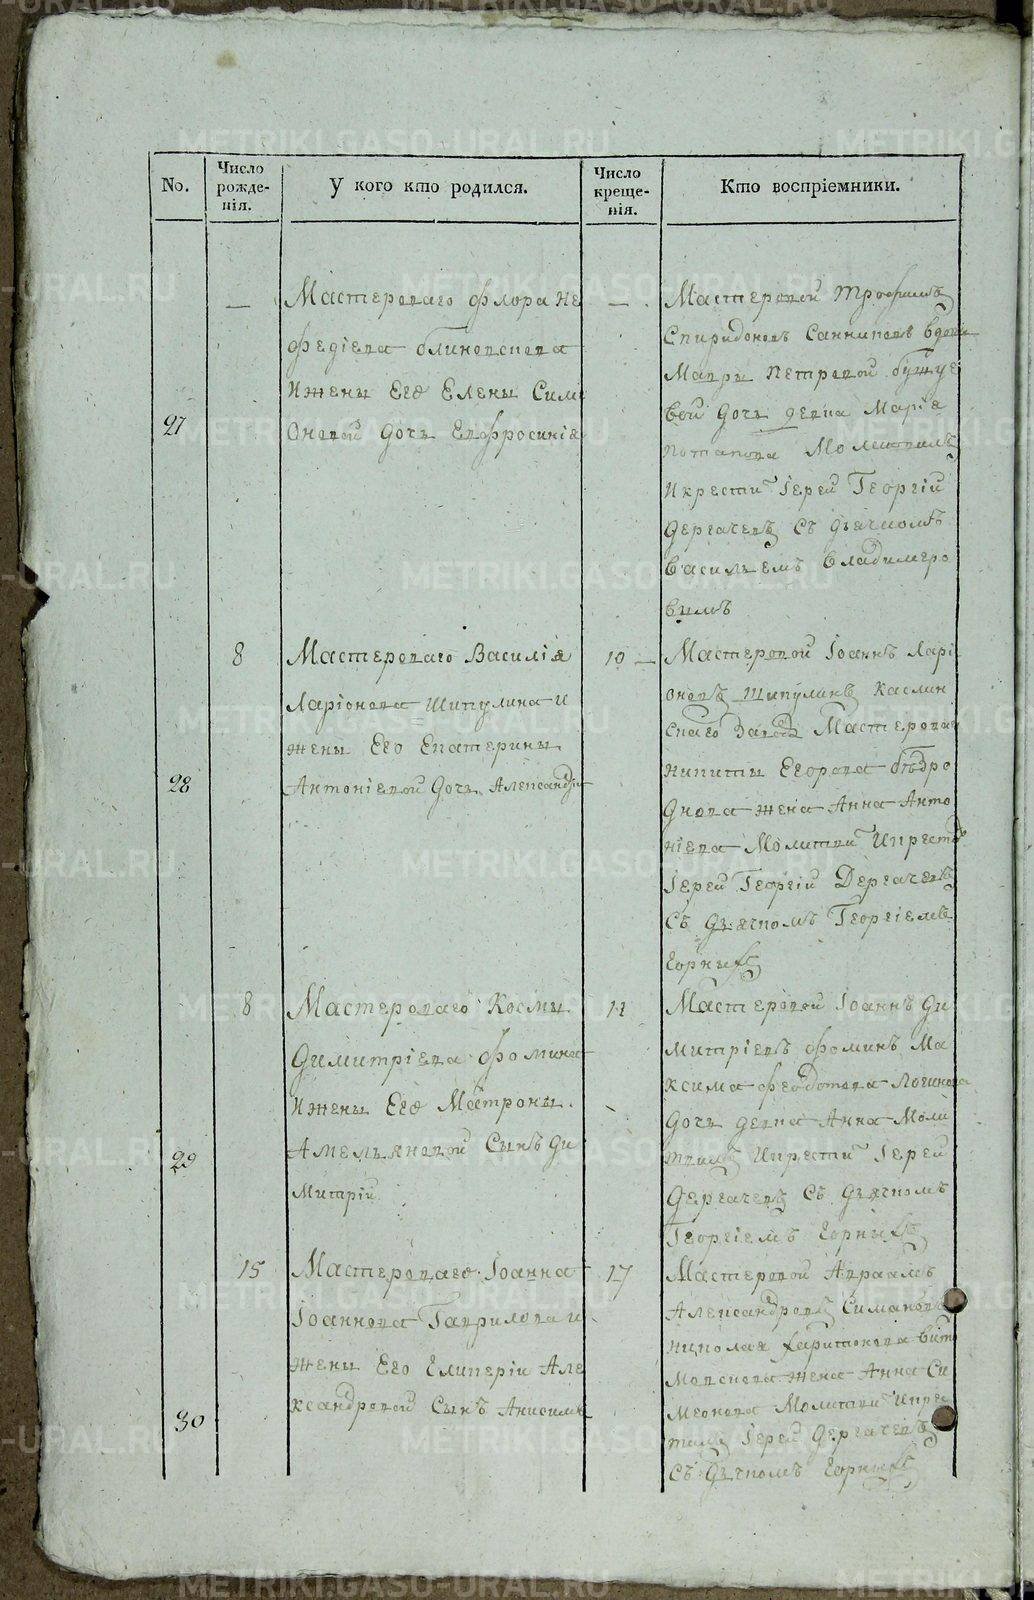 No.
Число рожде- нія.
У кого кто родился.
Число креще- нія.
Кто воспріемники.
27
—
Мастероваго Флора Не
федіева
И жены Его Елены Сим
оновой дочь Евфросинія
—
Мастеровой Трофимъ
Спиридоновъ Санниковъ вдовы
Мавры Петровой
вой дочь девка Марія
Потапова Молитвилъ
И крести Іерей Георгій
Дергачевъ съ дьячкомъ
Васильемъ Владимеро
вымъ
28
8
Мастероваго Василія
Ларіонова Шипулина И
жены Его Екатерины
Антоніевой дочь Александра
10 —
Мастеровой Іоаннъ Ларі
оновъ Шипулинъ Каслин
скаго Завода Мастероваго
Никиты Егорова
днова жена Анна Анто
ніева Молитви И крести
Іерей Георгій Дергачевъ
Съ дьячкомъ Георгіемъ
Горныхъ
29
8
Мастероваго Космы
Димитріева Фомина
И жены Его Матроны
Амельяновой Сынъ Ди
митрій
11
Мастеровой Іоаннъ Ди
митріевъ Фоминъ Ма
ксима Феодотова Логинова
дочь девка Анна Моли
твилъ И крести Іерей
Дергачевъ Съ дьячкомъ
Георгіемъ Горныхъ
30
15
Мастероваго Іоанна
Іоаннова Гаврилова и
жены Его Гликеріи Але
ксандровой Сынъ Анисимъ
17
Мастеровой Авраамъ
Александровъ Симановъ
Николая Харитонова
жена Анна Си
меонова Молитви И крес
тилъ Іерей Дергачевъ
Съ дьячкомъ Горныхъ
METRIKI.GASO-URAL.RU